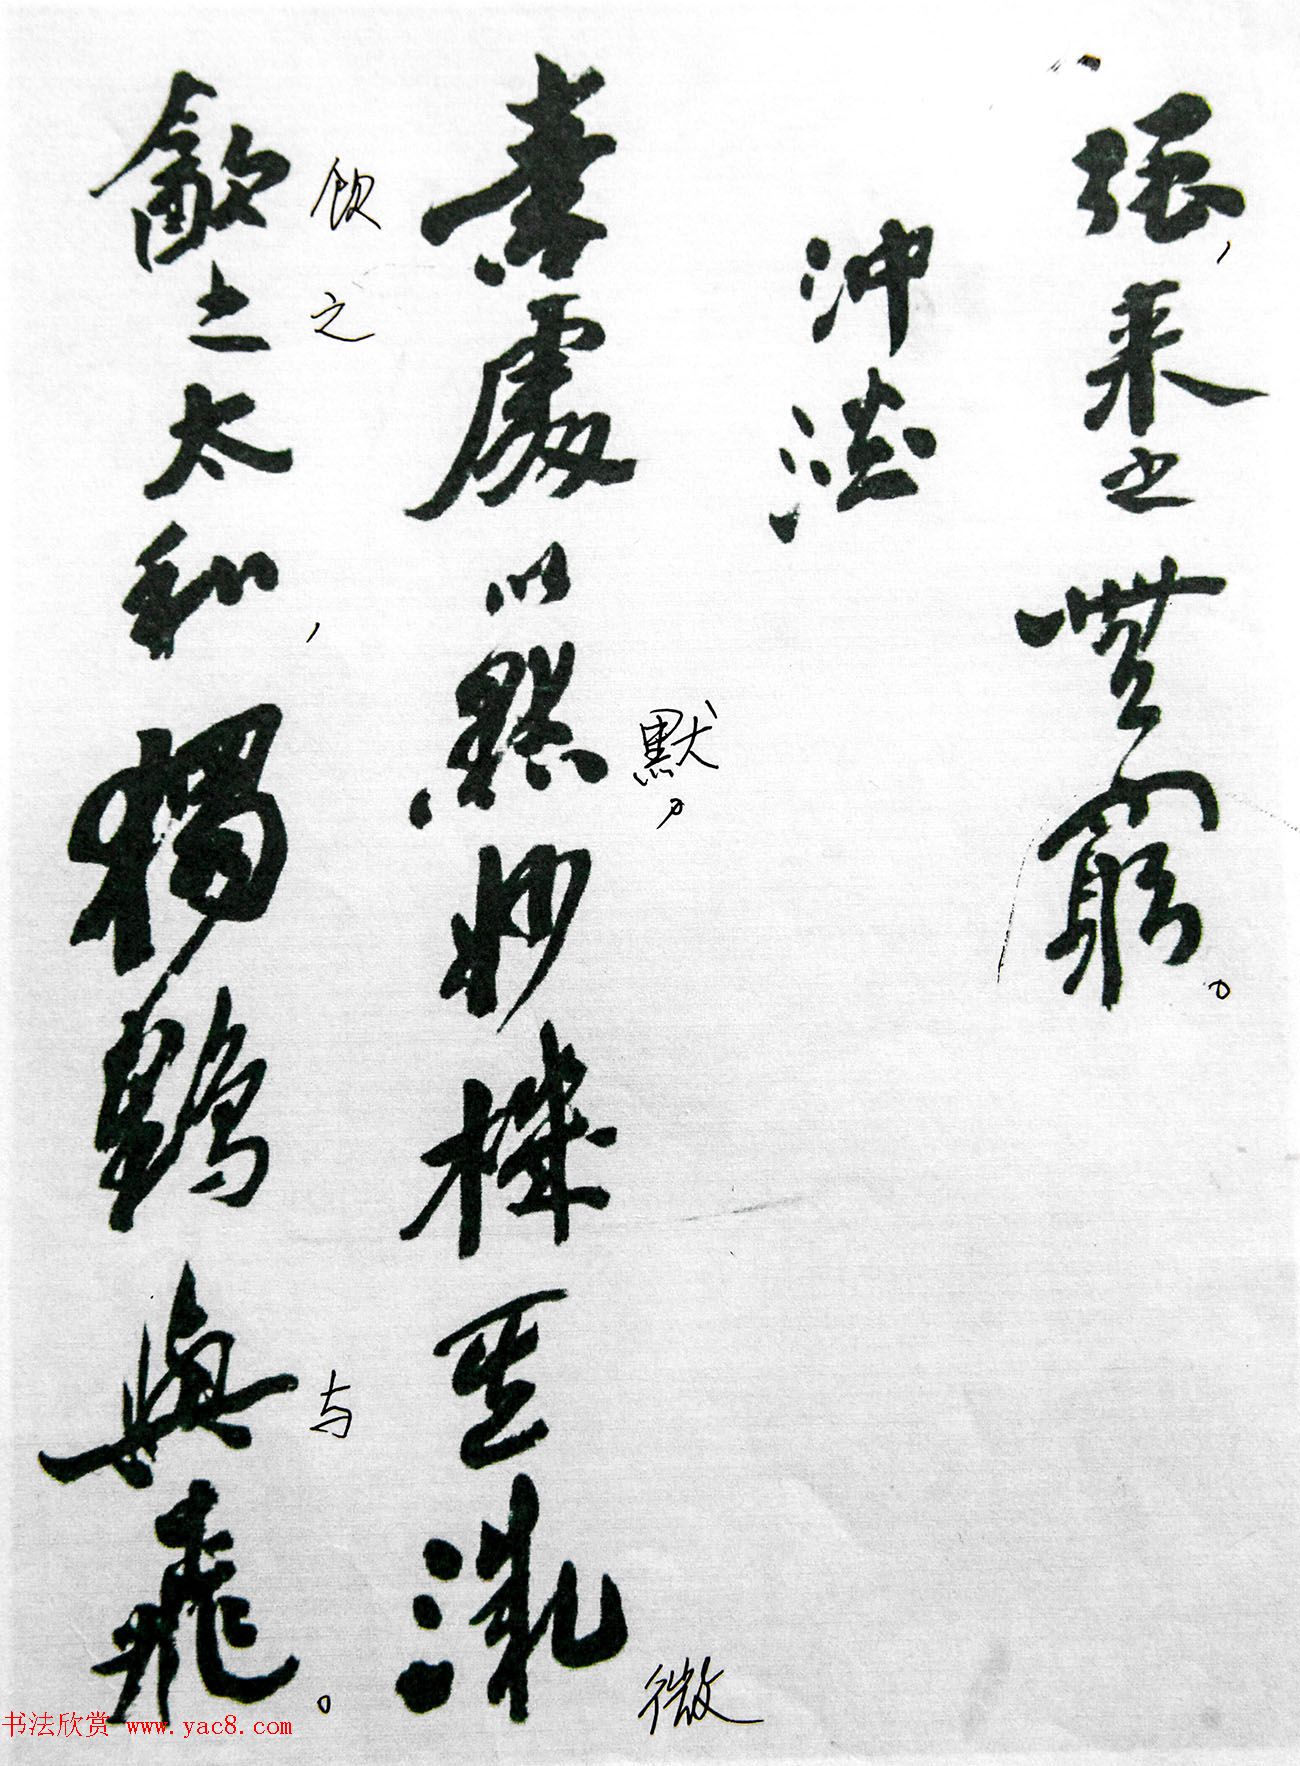 强，来之無窮。
冲淡
素處以默，妙機其微
默，
微
飲之太和，獨鶴與飛。
饮
之
与
书法欣赏 www.yac8.com